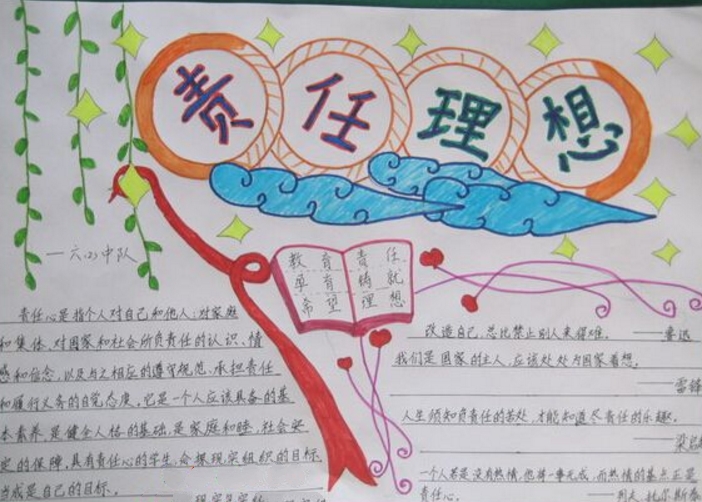 责任理想
一六(2)中队
教育责任
卓育铸就
希望理想
责任心是指个人对自己和他人,对家庭
和集体、对国家和社会所负责任的认识、情
感和信念,以及与之相应的遵守规范、承担责任
和履行义务的自觉态度。它是一个人应该具备的基
本素养,是健全人格的基础,是家庭和睦,社会安
定的保障,具有责任心的学生,会
现实组织的目标
当成是自己的目标。
改造自己,总比禁止别人来得难。 ——鲁迅
我们是国家的主人,应该处处为国家着想。
——雷锋
人生须知负责任的苦处,才能知道尽责任的乐趣。
——梁启
一个人若是没有热情,他将一事无成,而热情的基点正是
责任心。 ——列夫·托尔斯泰